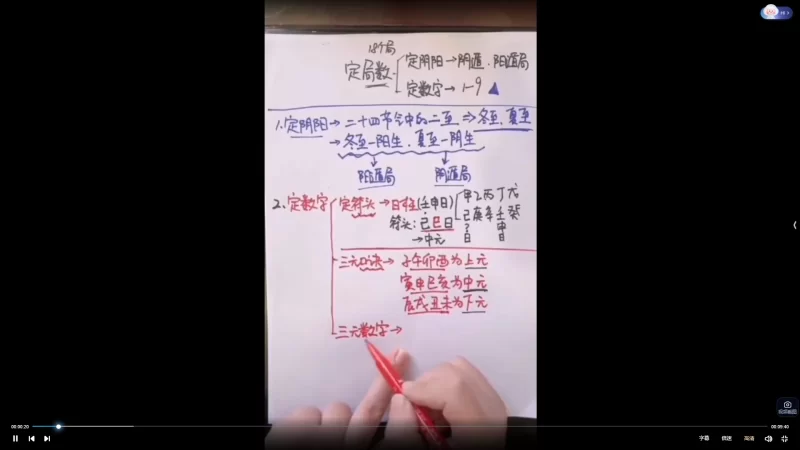 18个局
定局数
定阴阳→阴遁.阳遁局
定数字→1-9
1.定阴阳→二十四节气中的二至⇒冬至.夏至
→冬至一阳生.夏至一阴生
阳遁局 阴遁局
2.定数字
定符头→日柱(壬申日)
甲乙丙丁戊
己庚辛壬癸
符头:己巳日
? 申
→中元 日 日
三元口诀→子午卯酉为上元
寅申巳亥为中元
辰戌丑未为下元
三元数字→
00:00:20
00:05:40
字幕
倍速
高清